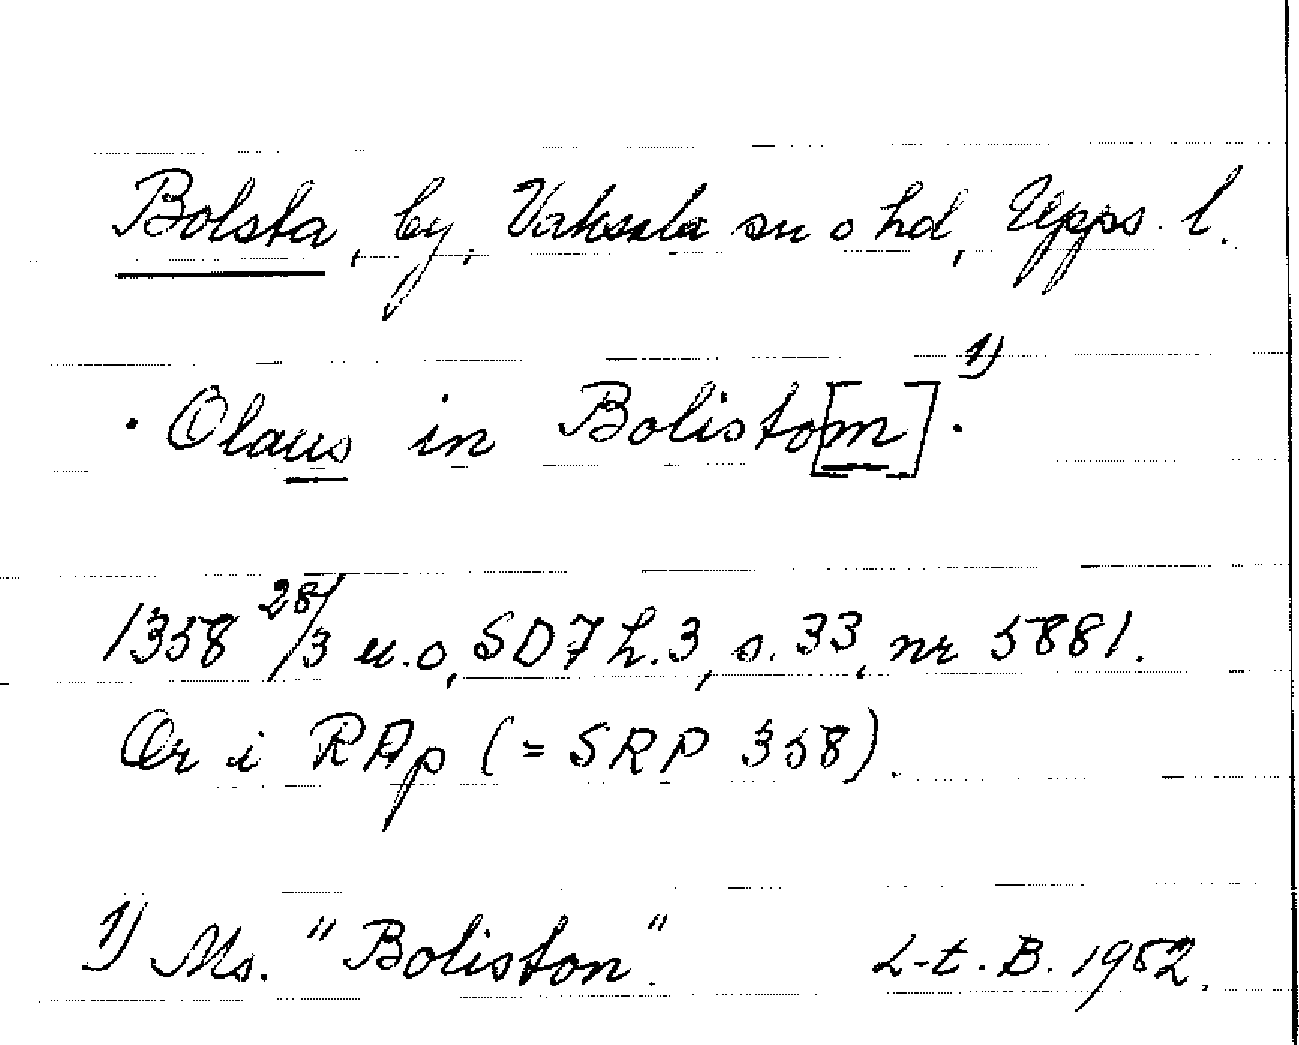 Bolsta, by, Vaksala sn o hd, Upps. l.
· Olaus in Bolisto[m] 1) .
1358 28/3 u.o, SD7 h.3, s. 33, nr 5881.
Or i RAp (= SRP 358).
1) Ms. "Boliston". L-t. B. 1952.